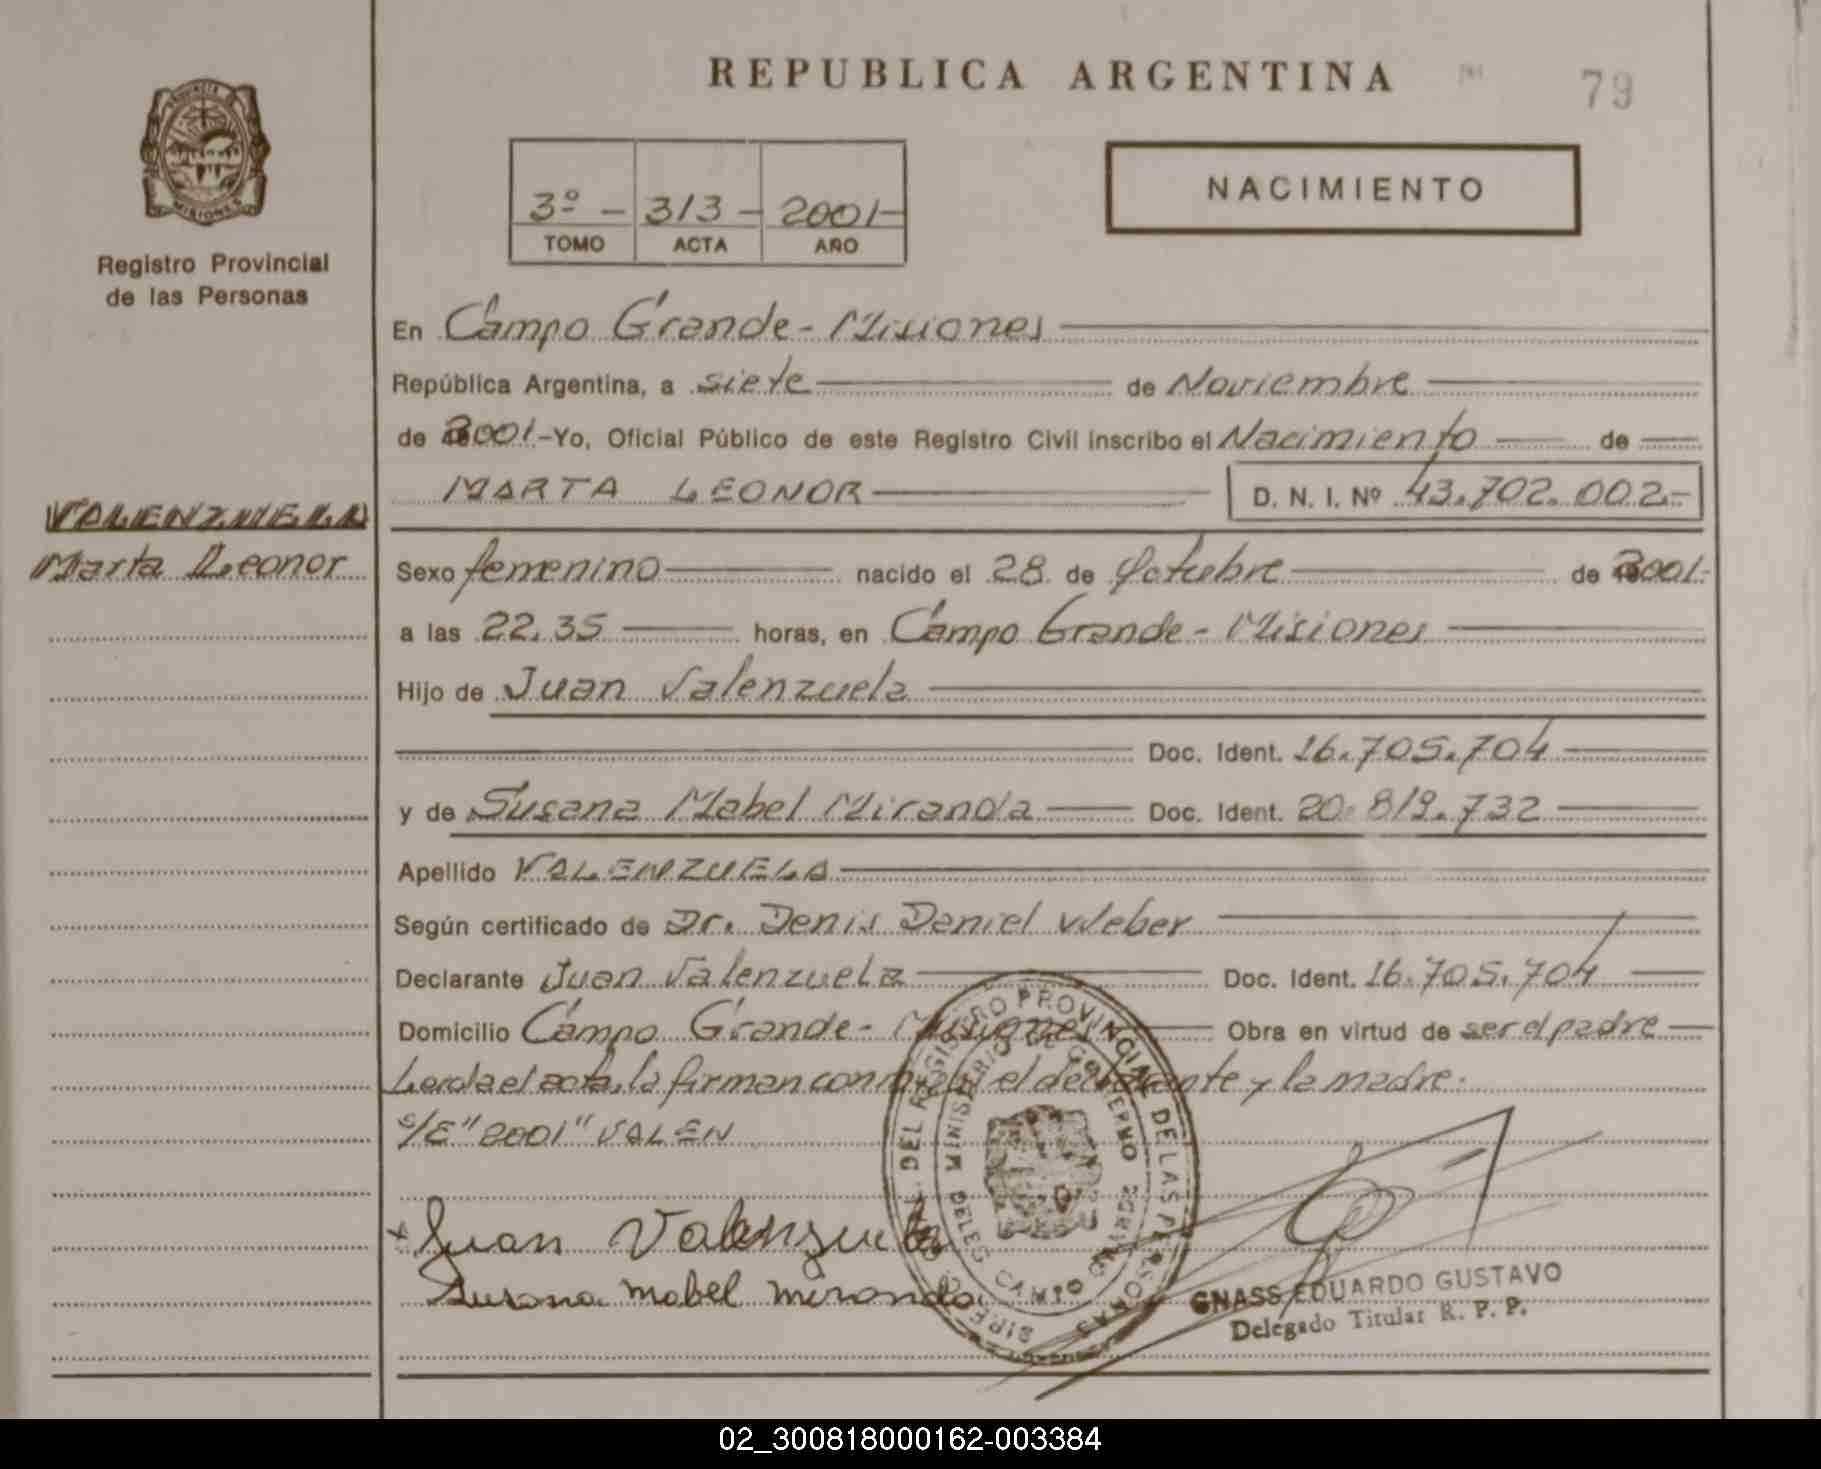 REPUBLICA ARGENTINA
79
PROVINCIA DE
MISIONES
Registro Provincial
de las Personas
3º - 313 - 2001-
TOMO ACTA AÑO
NACIMIENTO
En Campo Grande - Misiones
República Argentina, a siete de Noviembre
de 2001.- Yo, Oficial Público de este Registro Civil inscribo el Nacimiento de
MARTA LEONOR D. N. I. Nº 43.702.002.-
VALENZUELA
Marta Leonor
Sexo femenino nacido el 28 de Octubre de 2001.-
a las 22.35 horas, en Campo Grande - Misiones
Hijo de Juan Valenzuela
Doc. Ident. 16.705.704
y de Susana Mabel Miranda Doc. Ident. 20.819.732
Apellido VALENZUELA
Según certificado de Dr. Denis Daniel Weber
Declarante Juan Valenzuela Doc. Ident. 16.705.704
Domicilio Campo Grande - Misiones Obra en virtud de ser el padre
Leida el acta, la firman conmigo el declarante y la madre.
S/E "2001" VALEN
Juan Valenzuela
Susana Mabel Miranda
REGISTRO PROVINCIAL DE LAS PERSONAS
MINISTERIO DE GOBIERNO
DELEG. CAMPO GRANDE
GNASS EDUARDO GUSTAVO
Delegado Titular R. P. P.
02_300818000162-003384